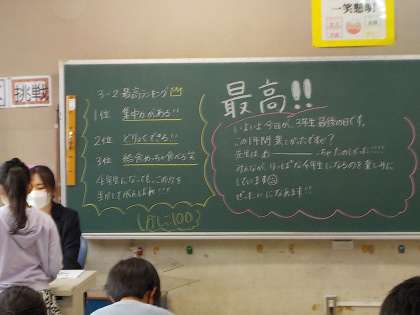 一笑懸命
挑戦
3-2 最高ランキング
1位 集中力がある!!
2位 どりょくできる!!
3位 給食めっちゃ食べる笑
4年生になっても、この力を
生かしてがんばれ!!!
最高!!
いよいよ今日が、3年生最後の日です。
この1年間楽しかったですか?
先生は、わーーーーーっちゃたのしかった!!!!
みんなが、りっぱな4年生になるのを楽しみに
しています
ぜったいになれます!!